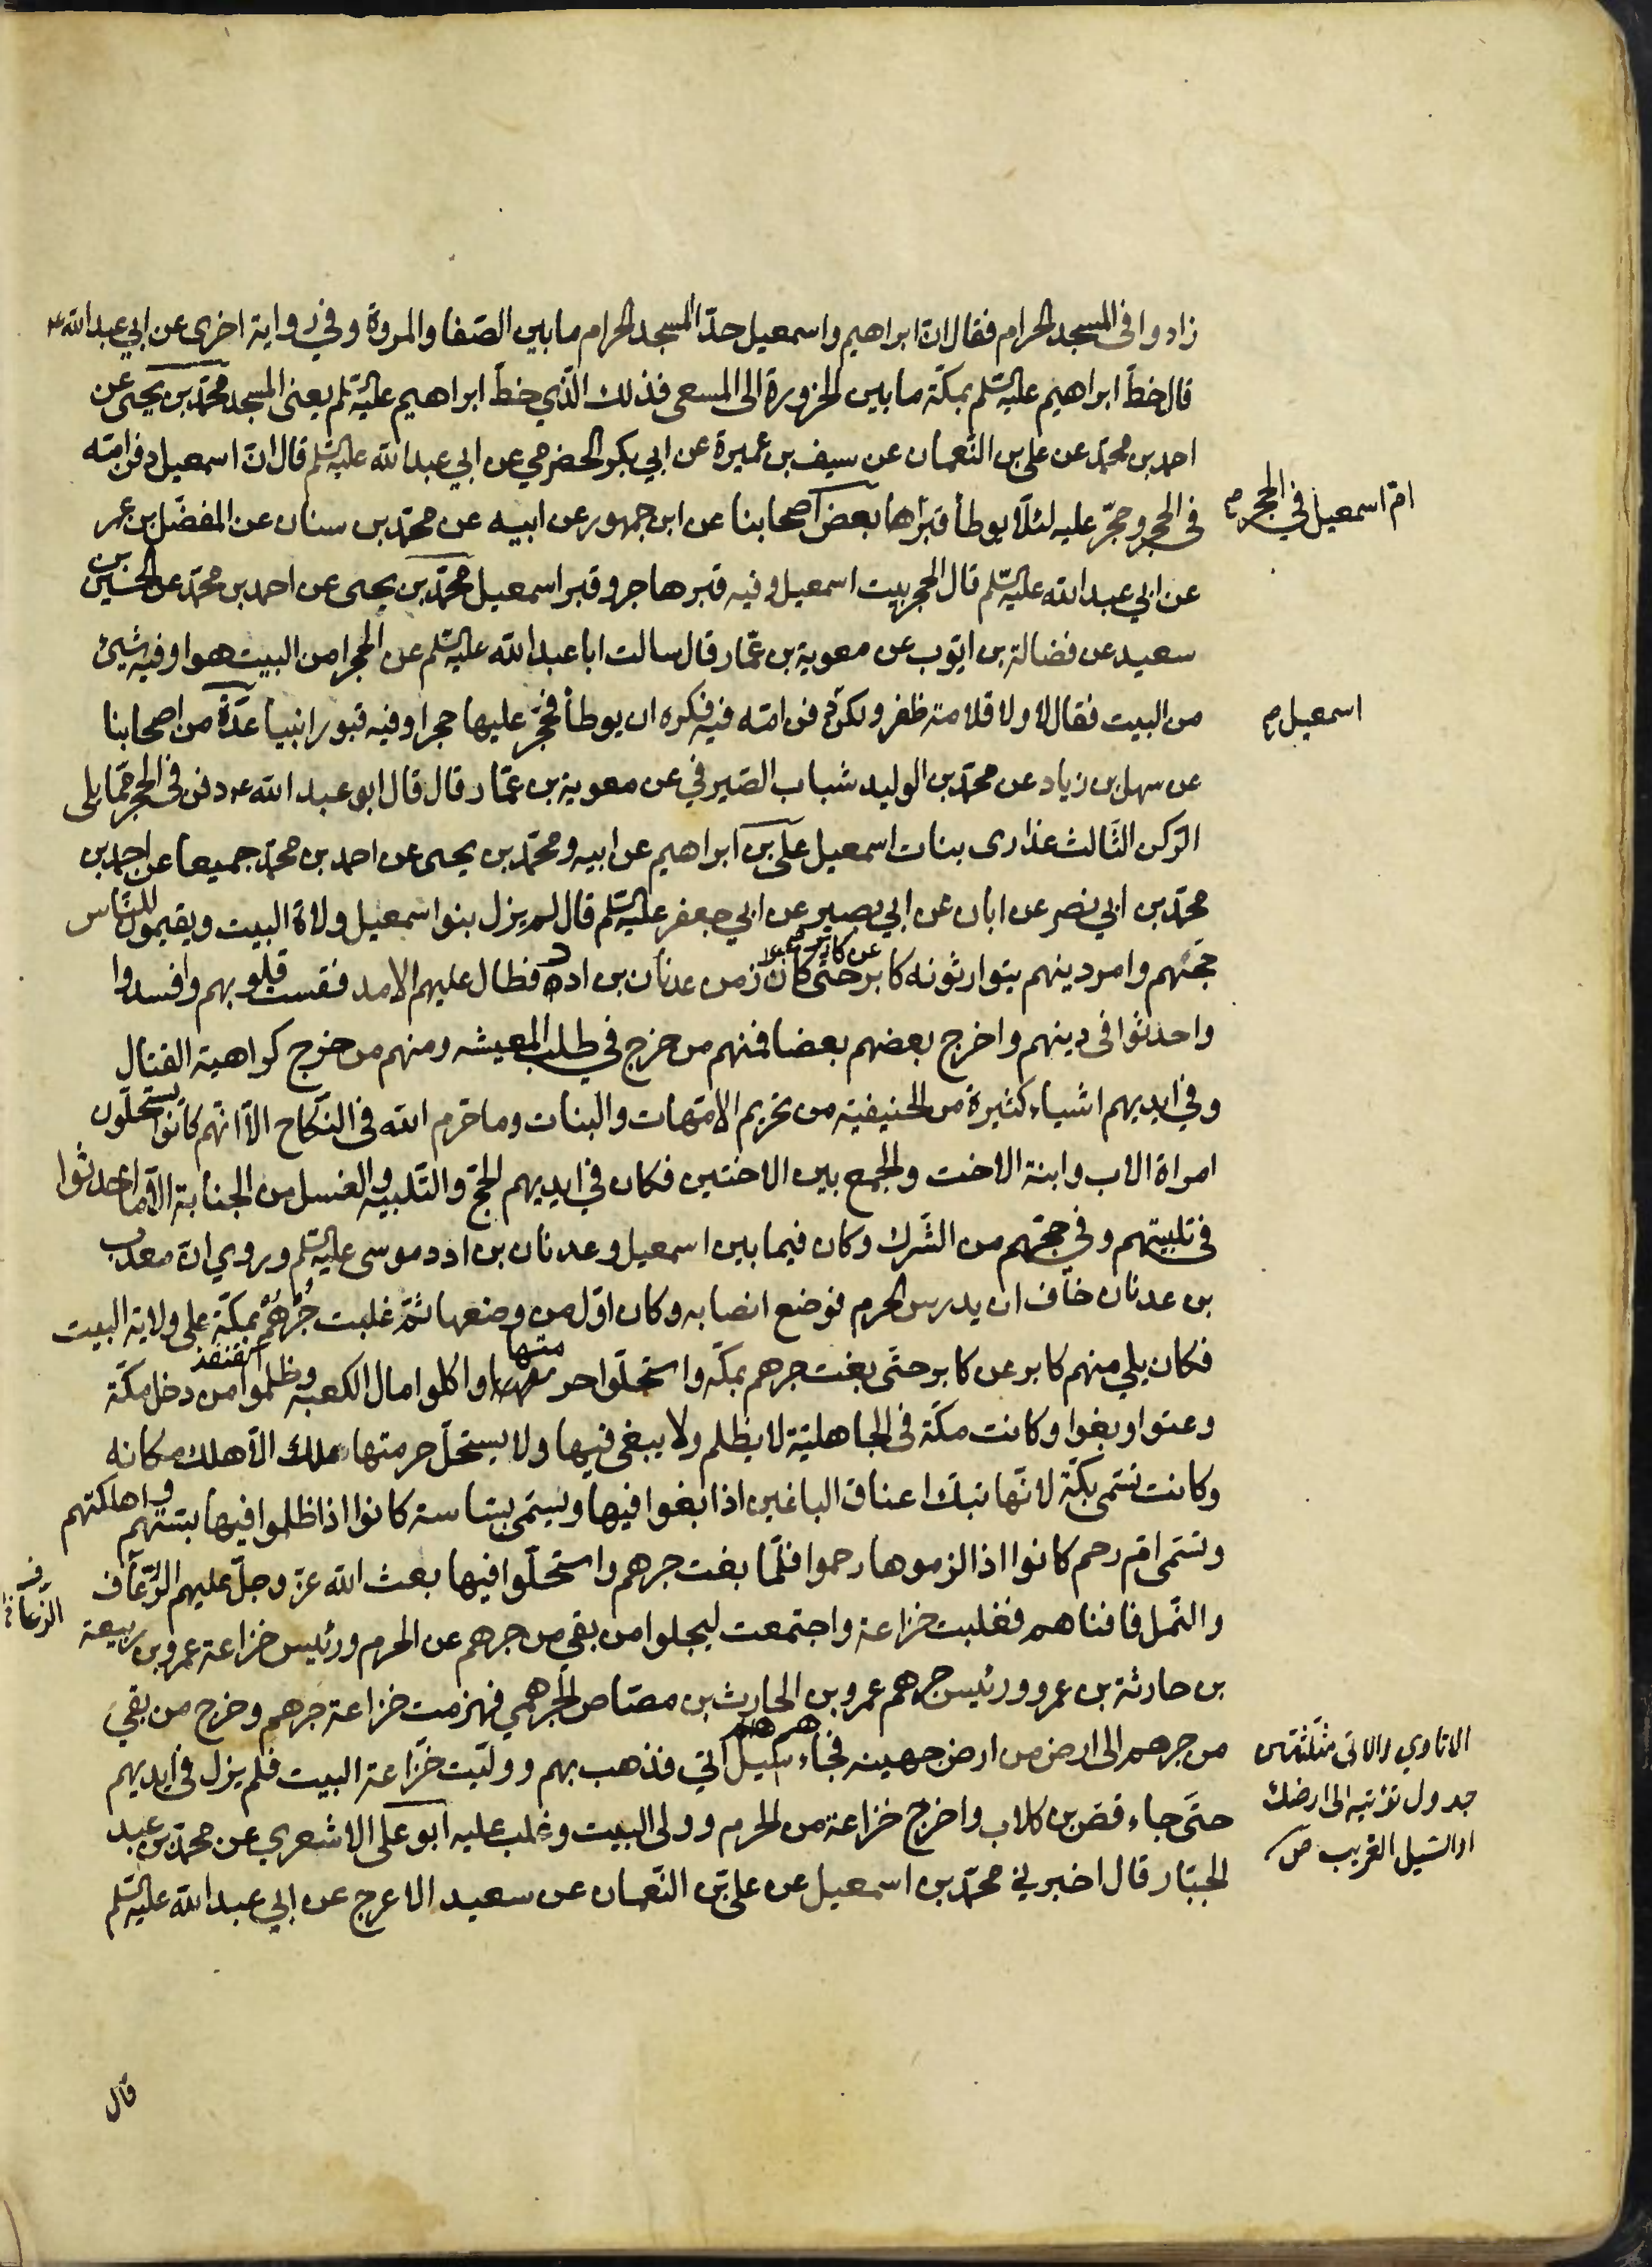 زادوا في المسجد الحرام فقال ان ابراهيم واسمعيل حدّا المسجد الحرام ما بين الصّفا والمروة وفي رواية اخرى عن ابي عبد الله ع
قال خطّ ابراهيم عليه السّلم بمكّة ما بين الحزورة الى المسعى فذلك الّذي خطّ ابراهيم عليه السّلم يعنى المسجد محمّد بن يحيى عن
احمد بن محمّد عن علي بن النّعمان عن سيف بن عميرة عن ابي بكر الحضرمي عن ابي عبد الله عليه السّلم قال انّ اسمعيل دفن امّه
امّ اسمعيل في الحجر
في الحجر وحجّر عليه لئلّا يوطأ قبرها بعض اصحابنا عن ابن جمهور عن ابيه عن محمّد بن سنان عن المفضّل بن عمر
عن ابي عبد الله عليه السّلم قال الحجر بيت اسمعيل وفيه قبر هاجر وقبر اسمعيل محمّد بن يحيى عن احمد بن محمّد عن الحسين بن
سعيد عن فضالة بن ايّوب عن معوية بن عمّار قال سالت ابا عبد الله عليه السّلم عن الحجر امن البيت هو او فيه شيئ
من البيت فقال لا ولا قلامة ظفر ولكن دفن امّه فيه فكره ان يوطأ فحجّر عليها حجرا وفيه قبور انبيا عدّة من اصحابنا
اسمعيل
عن سهل بن زياد عن محمّد بن الوليد شباب الصّيرفي عن معوية بن عمّار قال قال ابو عبد الله ع دفن في الحجر ممّا يلى
الرّكن الثّالث عذارى بنات اسمعيل علي بن ابراهيم عن ابيه ومحمّد بن يحيى عن احمد بن محمّد جميعا عن احمد بن
محمّد بن ابي نصر عن ابان عن ابي بصير عن ابي جعفر عليه السّلم قال لم يزل بنو اسمعيل ولاة البيت ويقيمون للنّاس
حجّهم وامر دينهم يتوارثونه كابر عن كابر حتّى كان زمن عدنان بن ادد فطال عليهم الامد فقست قلوبهم وافسدوا
واحدثوا في دينهم واخرج بعضهم بعضا فمنهم من خرج في طلب المعيشه ومنهم من خرج كراهية القتال
وفي ايديهم اشياء كثيرة من الحنيفية من تحريم الامّهات والبنات وما حرّم الله في النّكاح الّا انّهم كانوا يستحلّون
امراة الاب وابنة الاخت والجمع بين الاختين فكان في ايديهم الحجّ والتّلبيه والغسل من الجنابة الّا ما احدثوا
في تلبيتهم وفي حجّهم من الشّرك وكان فيما بين اسمعيل وعدنان بن ادد موسى عليه السّلم وروي انّ معدّ
بن عدنان خاف ان يدرس الحرم فوضع انصابه وكان اوّل من وضعها ثمّ غلبت جرهم بمكّة على ولاية البيت
فكان يلي منهم كابر عن كابر حتّى بغت جرهم بمكّه واستحلّوا حرمتها واكلوا مال الكعبه وظلموا من دخل مكّة
وعتوا وبغوا وكانت مكّة في الجاهليّة لا يظلم ولا يبغى فيها ولا يستحلّ حرمتها ملك الّا هلك مكانه
وكانت تسمّى بكّة لانّها تبك اعناق الباغين اذا بغوا فيها ويسمّى بسّاسة كانوا اذا ظلموا فيها بسّتهم واهلكتهم
وتسمّى امّ رحم كانوا اذا لزموها رحموا فلمّا بغت جرهم واستحلّوا فيها بعث الله عزّ وجلّ عليهم الرّعاف
الرّعاف
والنّمل فافناهم فغلبت خزاعة واجتمعت ليجلوا من بقي من جرهم عن الحرم ورئيس خزاعة عمرو بن ربيعة
بن حارثة بن عمرو ورئيس جرهم عمرو بن الحارث بن مصاص الجرهمي فهزمت خزاعة جرهم وخرج من بقي
من جرهم الى ارض من ارض جهينه فجاءهم سيل اتي فذهب بهم ووليّت خزاعة البيت فلم يزل في ايديهم
الاتاوي والاتى مثلثتين
جدول تؤتيه الى ارضك
او السّيل الغريب ص
حتّى جاء قصي بن كلاب واخرج خزاعة من الحرم وولى البيت وغلب عليه ابو علي الاشعري عن محمّد بن عبد
الجبّار قال اخبرني محمّد بن اسمعيل عن علي بن النّعمان عن سعيد الاعرج عن ابي عبد الله عليه السّلم
قال